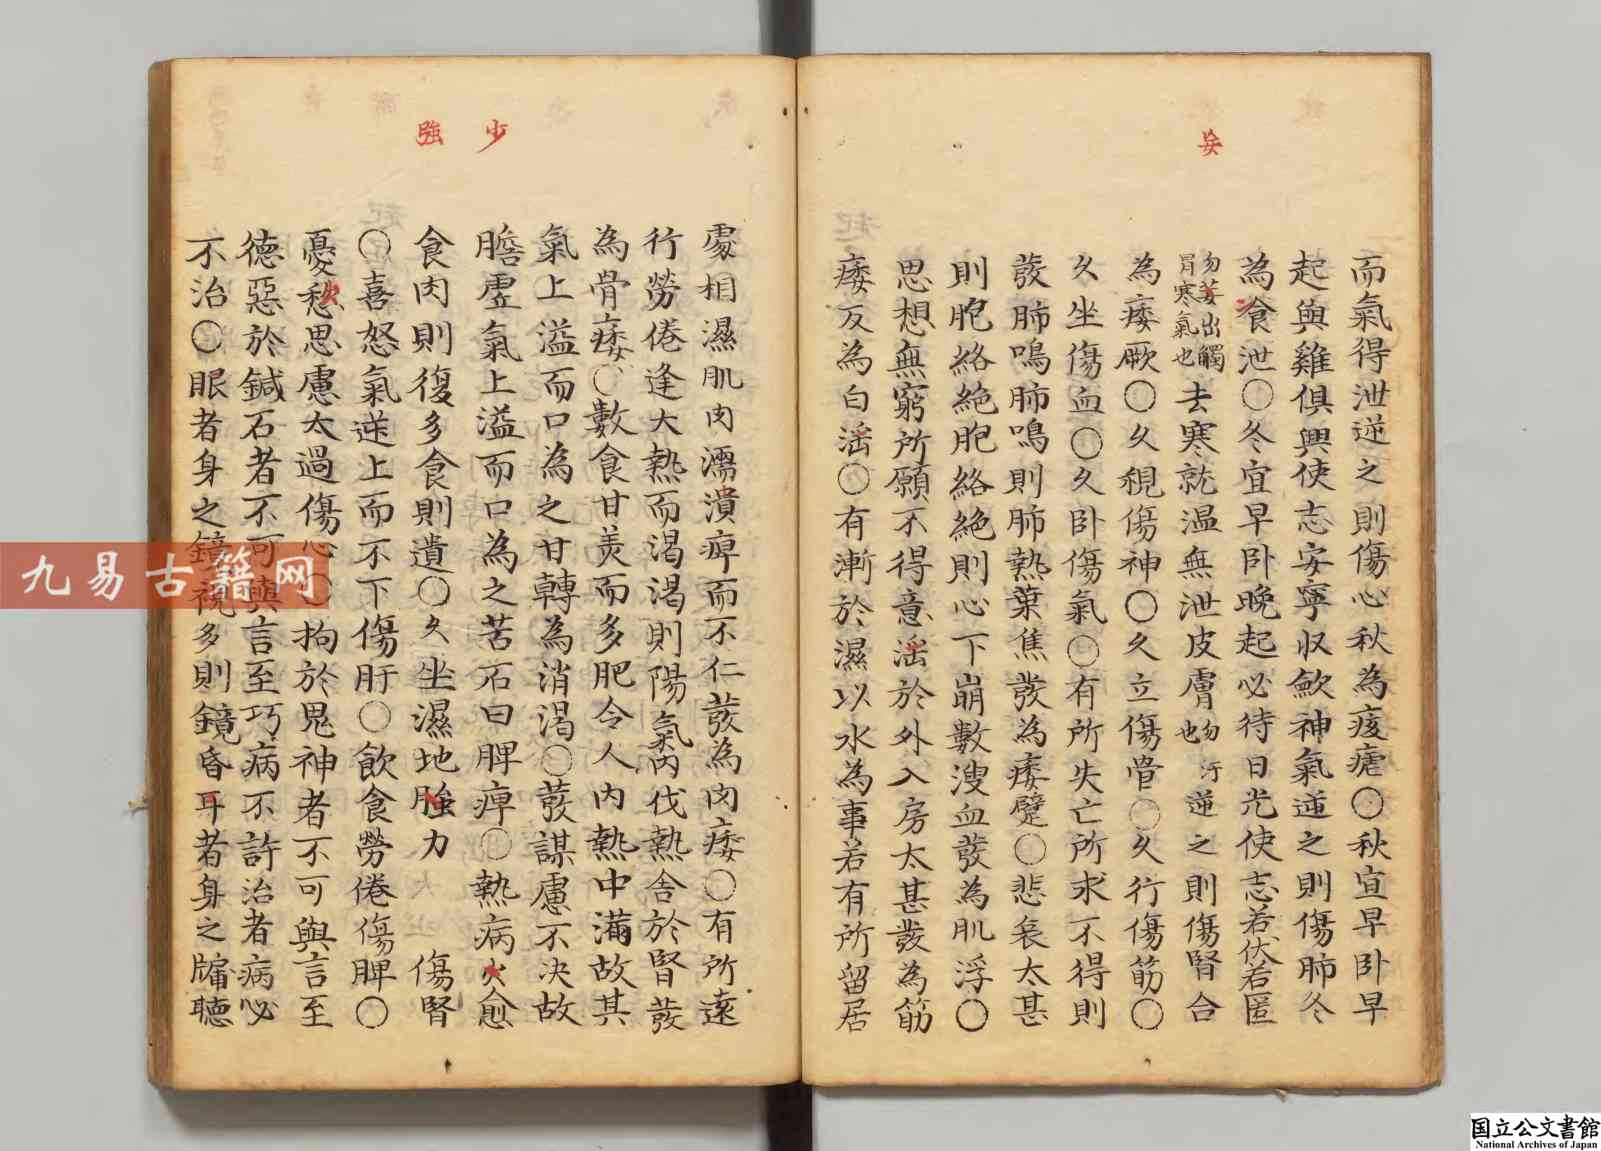 妄
而氣得泄逆之則傷心秋為痎瘧〇秋宜早卧早
起與雞俱興使志安寧収斂神氣逆之則傷肺冬
為食泄〇冬宜早卧晚起必待日光使志若伏若匿
勿妄出觸
胃寒氣也
去寒就温無泄皮膚勿汗也逆之則傷腎合
為痿厥〇久視傷神〇久立傷骨〇久行傷筋〇
久坐傷血〇久卧傷氣〇有所失亡所求不得則
發肺鳴肺鳴則肺熱葉焦發為痿躄〇悲哀太甚
則胞絡絶胞絡絶則心下崩數溲血發為肌浮〇
思想無窮所願不得意滛於外入房太甚發為筋
痿及為白滛〇有漸於濕以水為事若有所留居
少
強
處相濕肌肉濡潰痺而不仁發為肉痿〇有所遠
行勞倦逢大熱而渴渴則陽氣内伐熱舍於腎發
為骨痿〇數食甘美而多肥令人内熱中滿故其
氣上溢而口為之甘轉為消渴〇發謀慮不决故
膽虛氣上溢而口為之苦石曰脾痺〇熱病火愈
食肉則復多食則遺〇久坐濕地強力 傷腎
〇喜怒氣逆上而不下傷肝〇飲食勞倦傷脾〇
憂愁思慮太過傷心〇拘於鬼神者不可與言至
德惡於鍼石者不可與言至巧病不許治者病必
不治〇眼者身之鏡視多則鏡昏耳者身之牖聴
九易古籍网
国立公文書館
National Archives of Japan